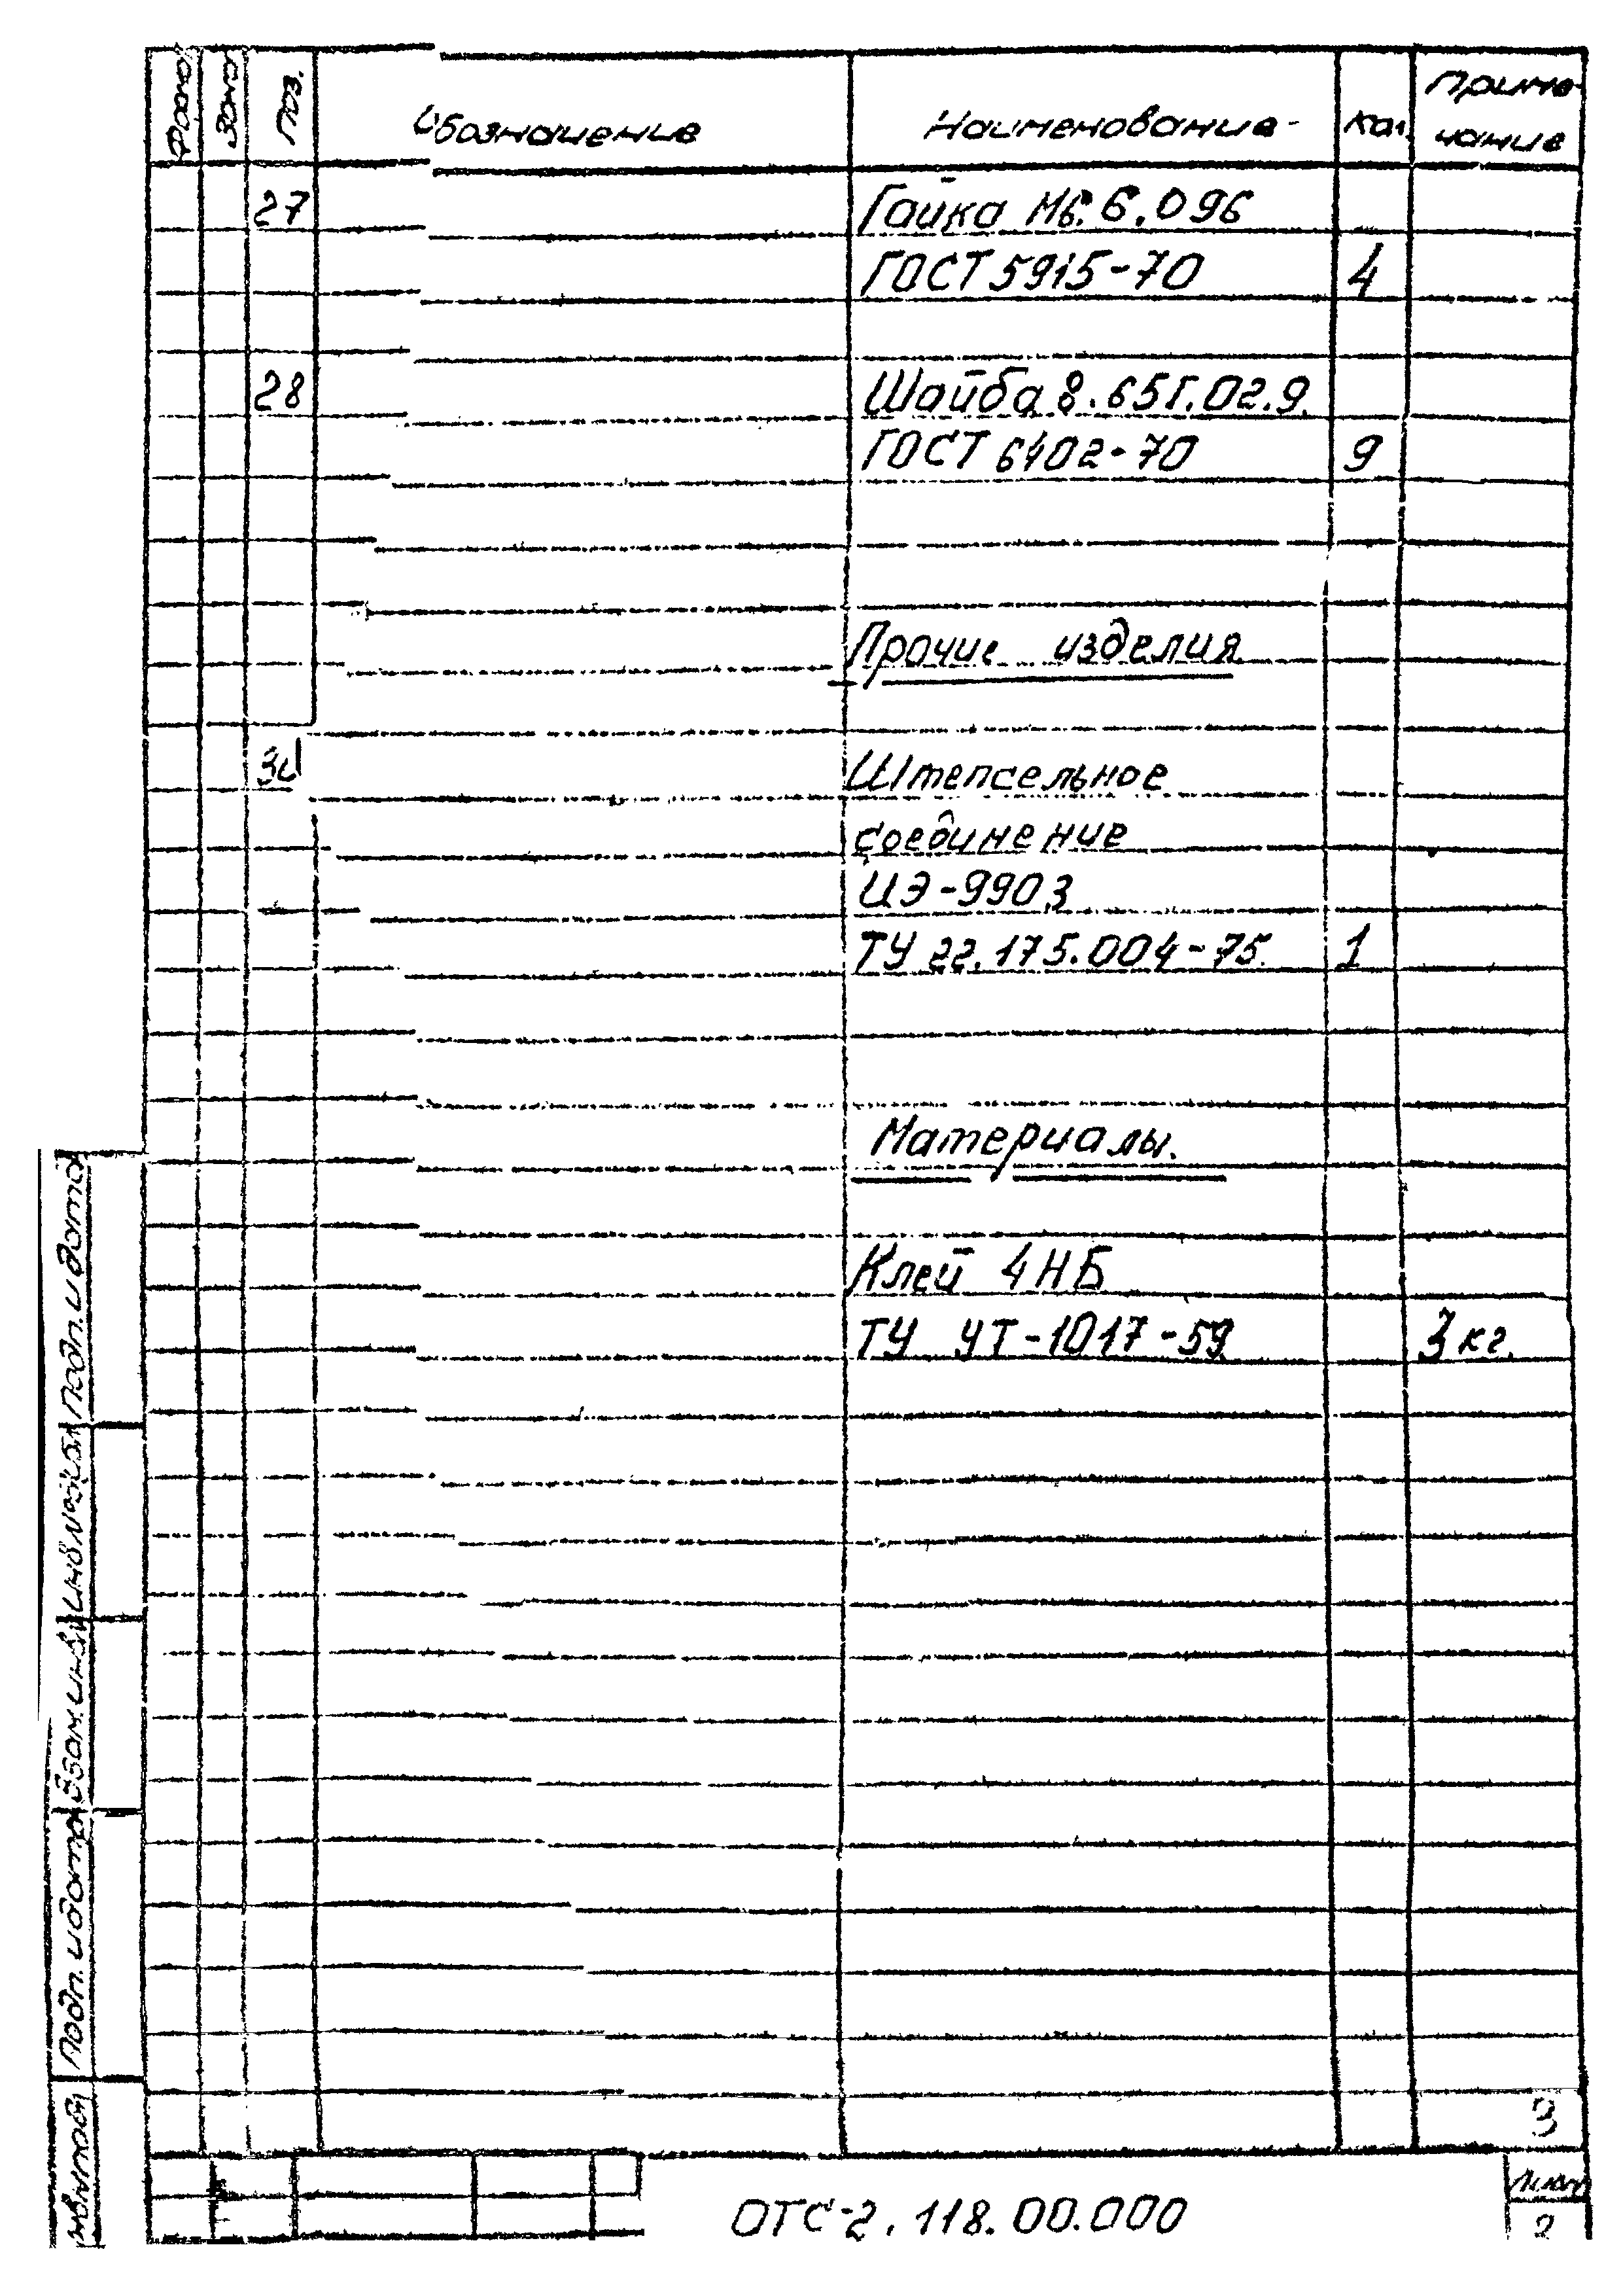 Формат Зона Поз. Обозначение Наименование Кол. Приме-
чание
27 Гайка М6.6.096
ГОСТ 5915-70 4
28 Шайба 8.65Г.02.9
ГОСТ 6402-70 9
Прочие изделия
Штепсельное
соединение
ИЭ-9903
ТУ 22.175.004-75. 1
Материалы.
Клей 4НБ
ТУ УТ-1017-59 3 кг.
Подп. и дата
Взам. инв.
Подп. и дата
3
ОТС-2.118.00.000
Лист
2